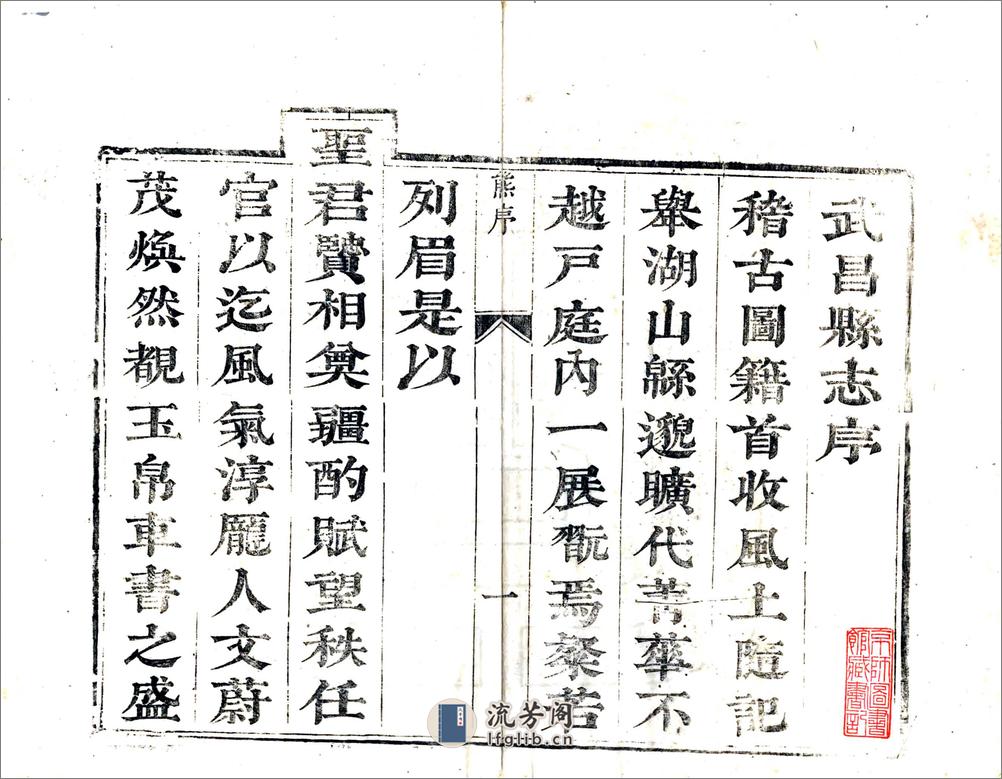 武昌縣志序
稽古圖籍首收風土隨記
舉湖山緜邈曠代菁華不
越戸庭內一展翫焉粲若
列眉是以
熊序
一
聖君賢相奠疆酌賦望秩任
官以迄風氣淳龐人文蔚
茂煥然覩玉帛車書之盛
京師圖書
館藏書記
流芳阁
lfglib.cn